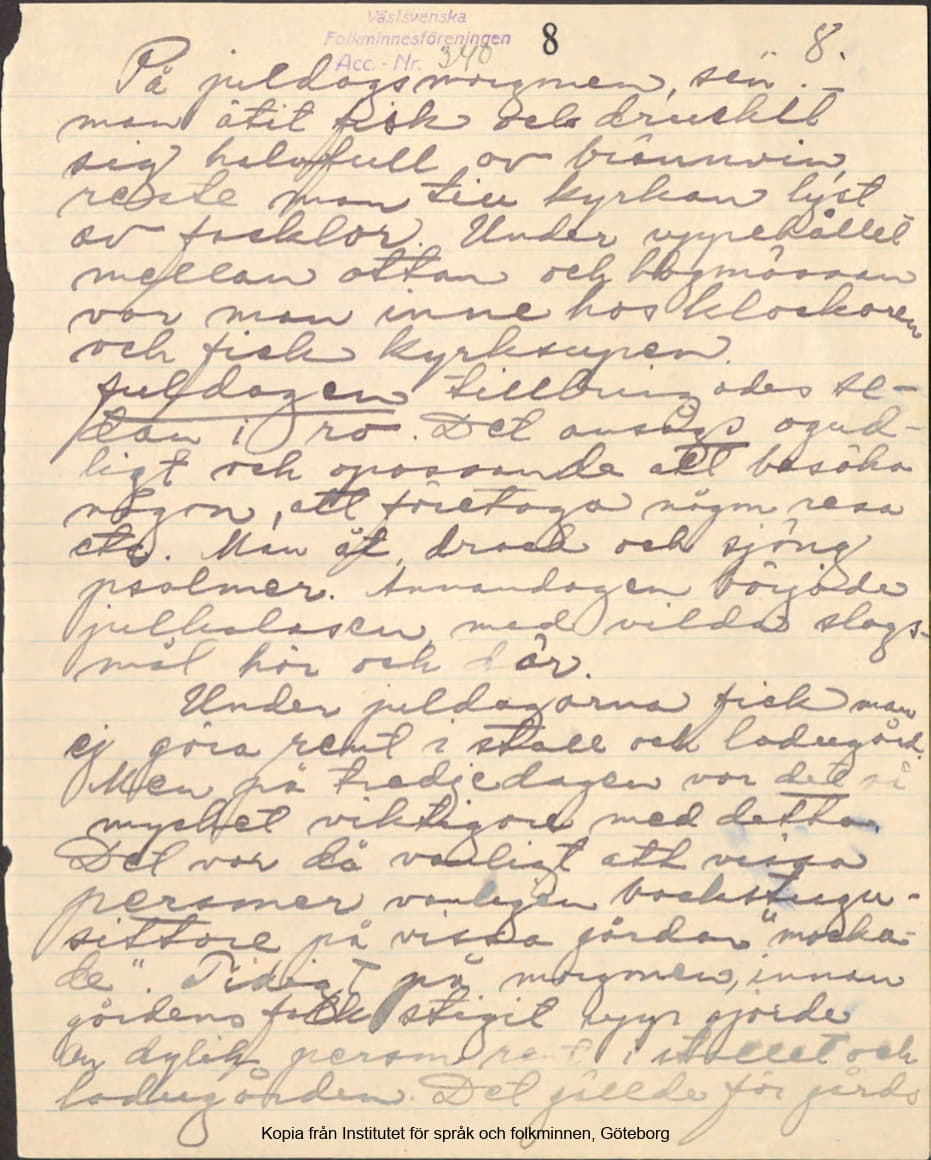 Västsvenska
Folkminnesföreningen
Acc. - Nr. 340
8
8.
På juldagsmorgonen, sen
man ätit fisk och druckit
sig halvfull av brännvin,
reste man till kyrkan lyst
av facklor. Under uppehållet
mellan ottan och högmässan
var man inne hos klockaren
och fick kyrksupen.
Juldagen tillbringades se-
dan i ro. Det ansågs ogud-
ligt och opassande att besöka
någon, att företaga någon resa
etc. Man åt, drack och sjöng
psalmer. Annandagen började
julkalasen, med vilda slags-
mål här och där.
Under juldagarna fick man
ej göra rent i stall och ladugård.
Men på tredjedagen var det så
mycket viktigare med detta.
Det var då vanligt att vissa
personer vanligen backstugu-
sittare på vissa gårdar "mocka-
de". Tidigt på morgonen, innan
gårdens folk stigit upp gjorde
en dylik person rent i stallet och
ladugården. Det gällde för gårds
Kopia från Institutet för språk och folkminnen, Göteborg